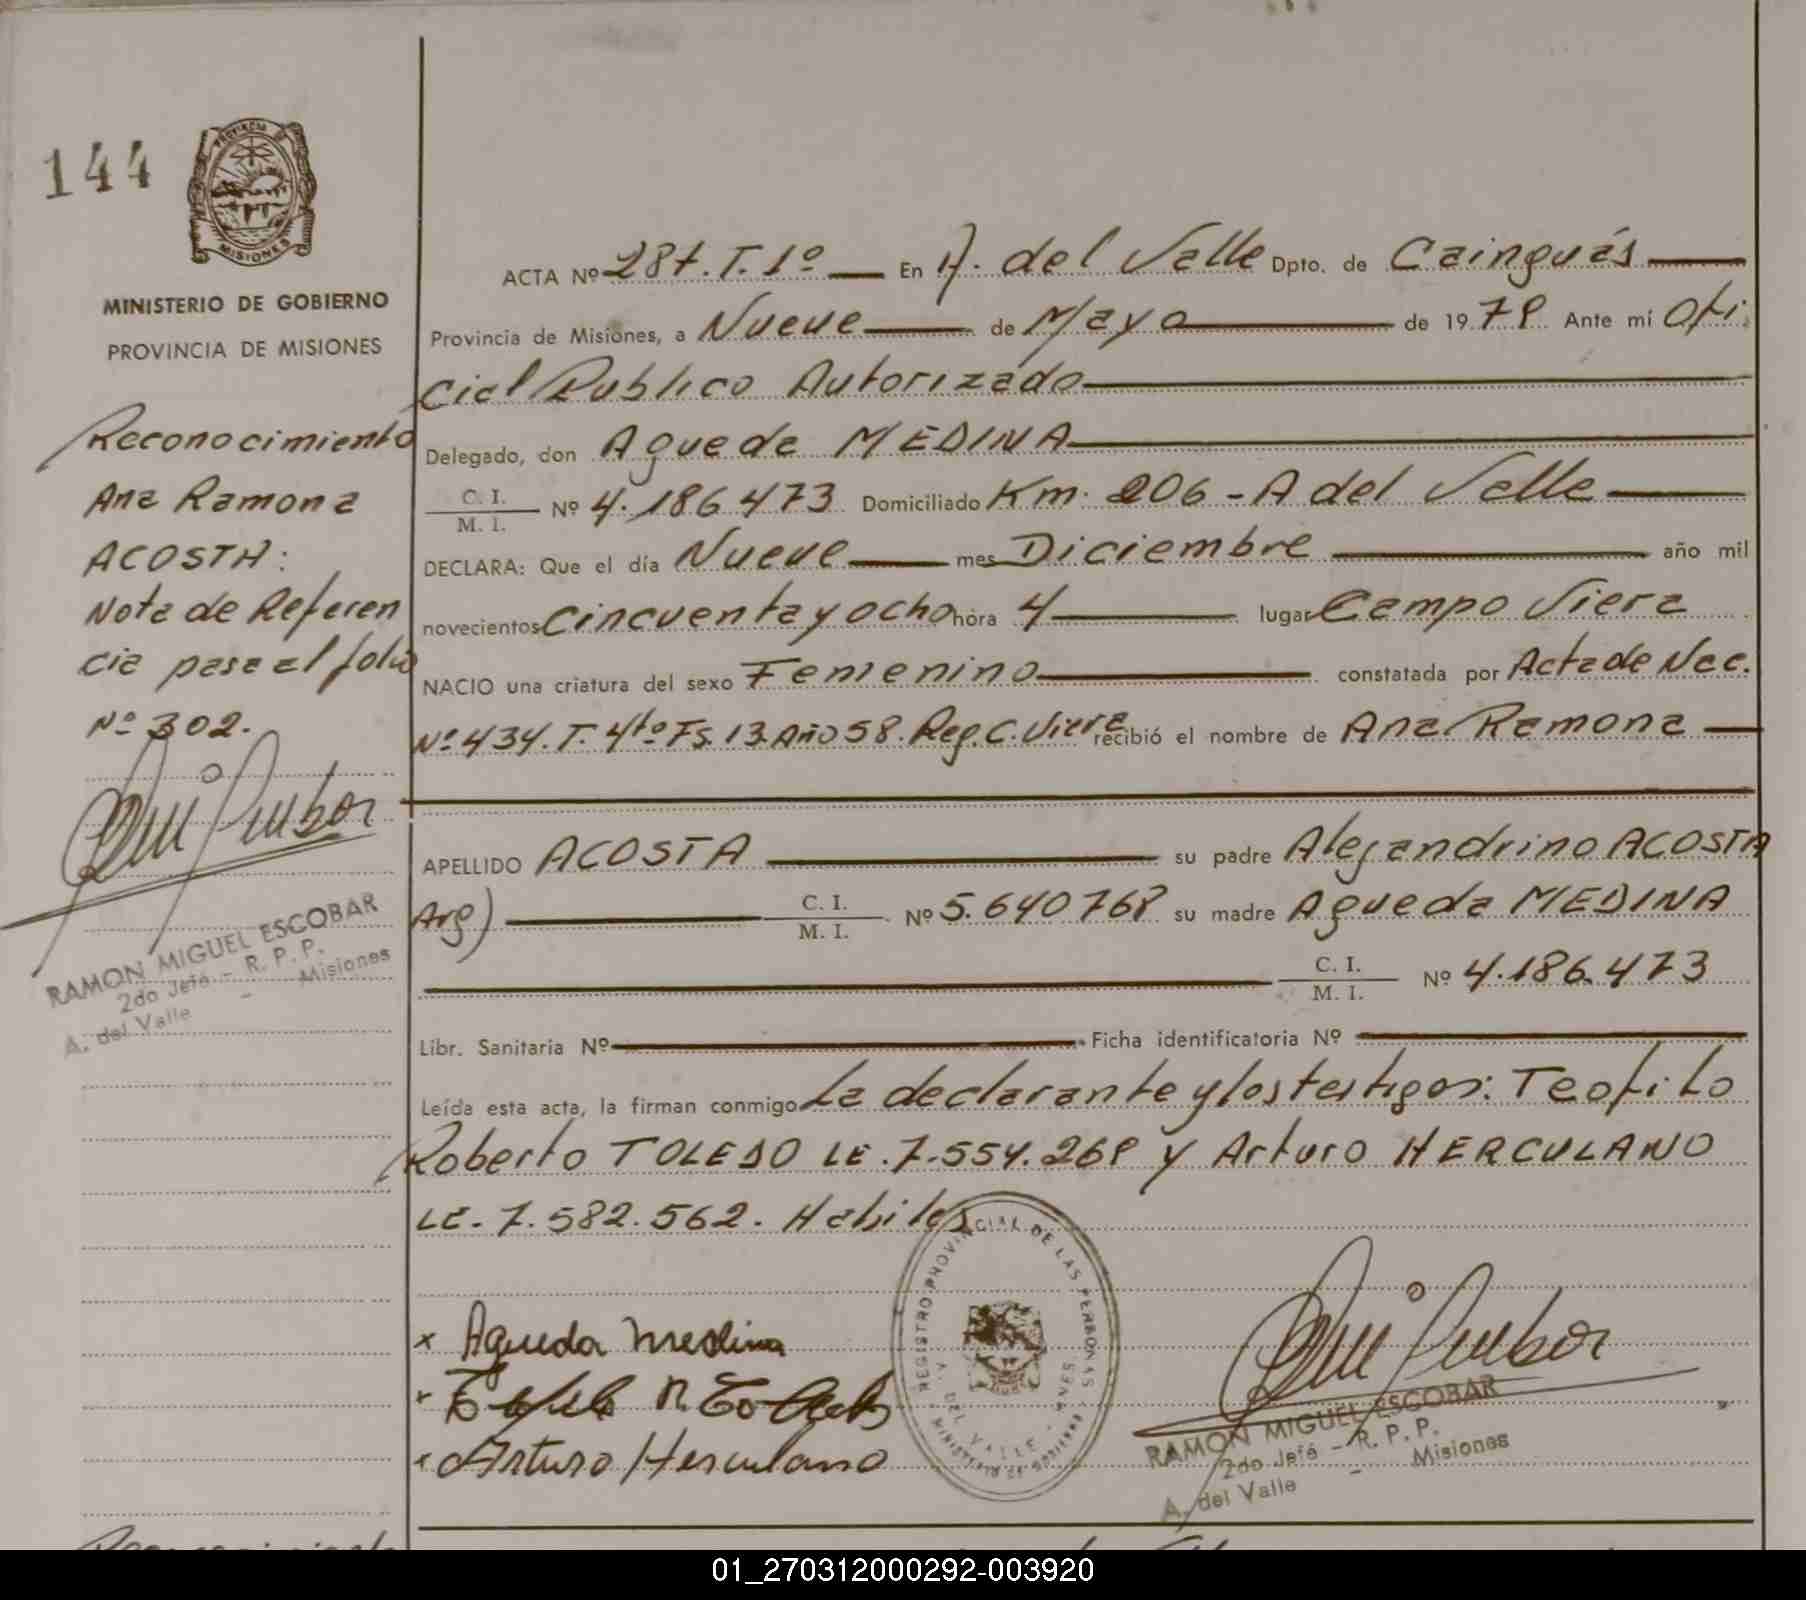 144
PROVINCIA
MISIONES
MINISTERIO DE GOBIERNO
PROVINCIA DE MISIONES
Reconocimiento
Ana Ramona
ACOSTA:
Nota de Referen
cia pasa al folio
Nº 302.
RAMON MIGUEL ESCOBAR
2do Jefe - R. P. P.
A. del Valle - Misiones
ACTA Nº 287. T. 1º En A. del Valle Dpto. de Cainguás
Provincia de Misiones, a Nueve de Mayo de 1979. Ante mí Ofi
cial Publico Autorizado
Delegado, don Agueda MEDINA
C. I. / M. I. Nº 4.186473 Domiciliado Km. 206 - A del Valle
DECLARA: Que el día Nueve mes Diciembre año mil
novecientos Cincuenta y ocho hora 4 lugar Campo Viera
NACIO una criatura del sexo Femenino constatada por Acta de Nac.
Nº 434. T. 4to Fs. 13. Año 58. Reg. C. Viera recibió el nombre de Ana Ramona
APELLIDO ACOSTA su padre Alejandrino ACOSTA
Arg) C. I. / M. I. Nº 5.640768 su madre Agueda MEDINA
C. I. / M. I. Nº 4.186.473
Libr. Sanitaria Nº Ficha identificatoria Nº
Leída esta acta, la firman conmigo La declarante y los testigos: Teofilo
Roberto TOLEDO LE. 7.554.268 y Arturo HERCULANO
LE. 7.582.562. Habiles
REGISTRO PROVINCIAL DE LAS PERSONAS
A. DEL VALLE - MNES
x Agueda Medina
x Arturo Herculano
RAMON MIGUEL ESCOBAR
2do Jefe - R. P. P.
A. del Valle - Misiones
01_270312000292-003920